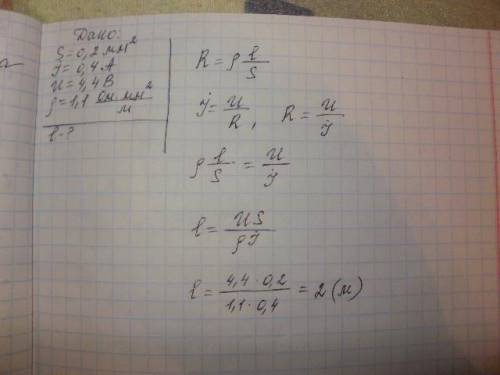 Дано:
S = 0,2 мм²
I = 0,4 А
U = 4,4 В
ρ = 1,1 Ом мм² / м
l - ?
R = ρ l / S
I = U / R , R = U / I
ρ l / S = U / I
l = US / ρI
l = 4,4 · 0,2 / 1,1 · 0,4 = 2 (м)